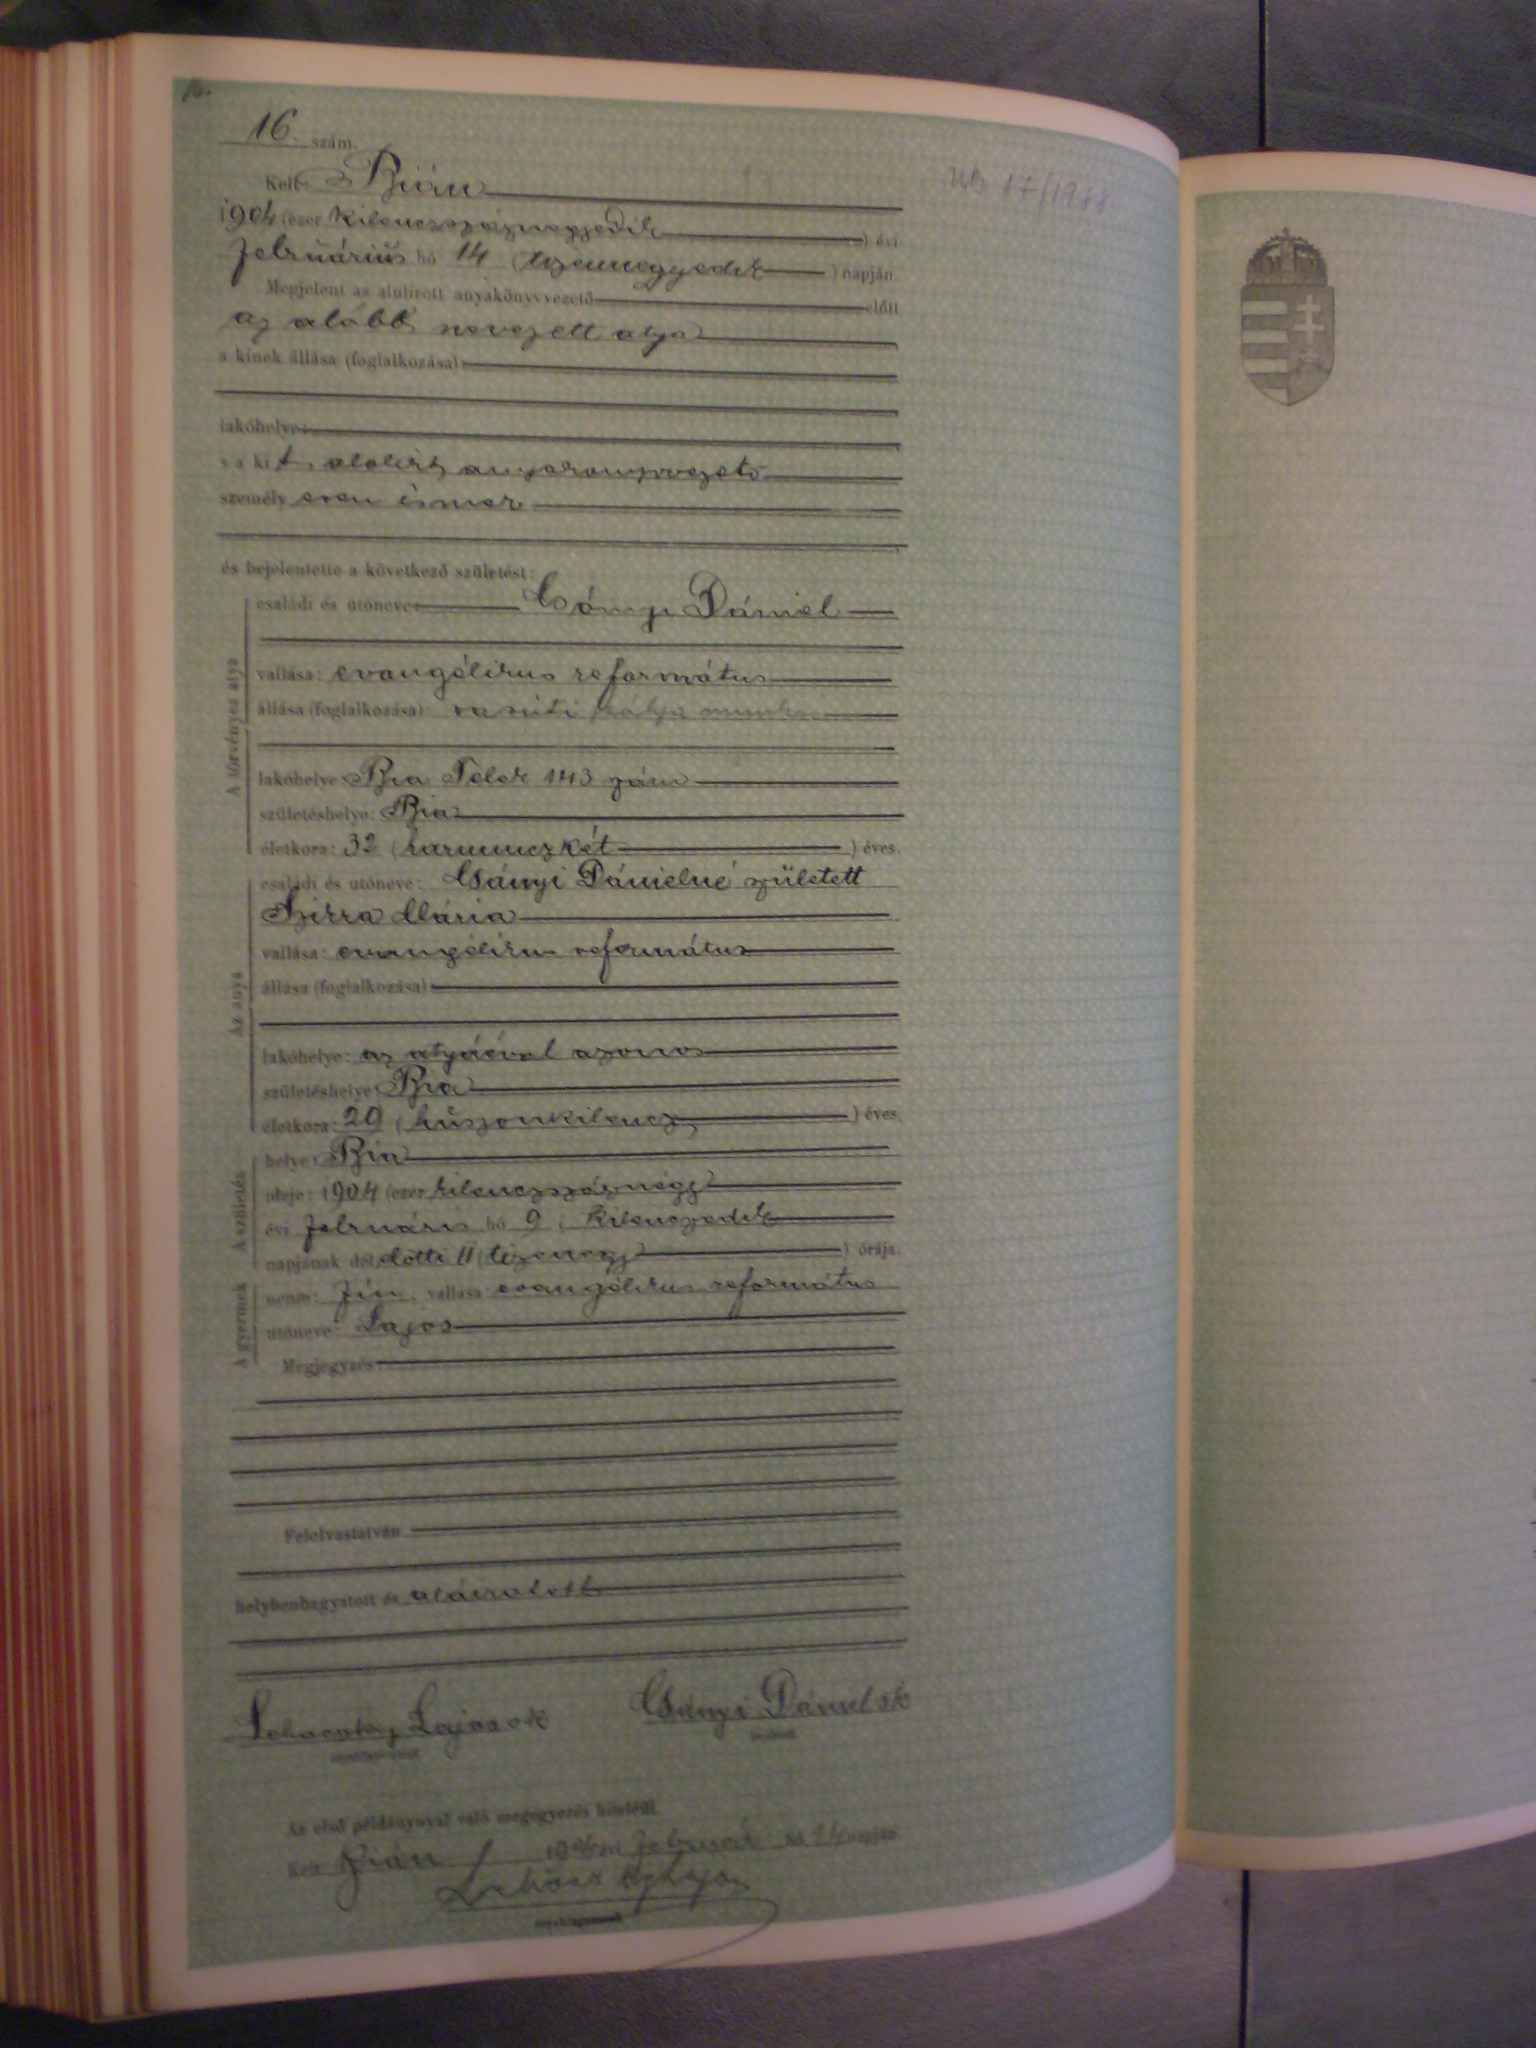 16. szám.
Kelt: Bián
1904 (ezer kilenczszáznegyedik) évi
februárius hó 14 (tizennegyedik) napján.
Megjelent az alulírott anyakönyvvezető előtt
az alább nevezett atya
a kinek állása (foglalkozása)
lakóhelye:
s a kit alolirt anyakönyvvezető
személyesen ismer
és bejelentette a következő születést:
A törvényes atya
családi és utóneve: Csányi Dániel
vallása: evangélikus református
állása (foglalkozása): vasúti pálya
lakóhelye: Bia Telek 143 szám
születéshelye: Bia
életkora: 32 (harminczkét) éves.
Az anya
családi és utóneve: Csányi Dánielné született
Szirra Mária
vallása: evangélikus református
állása (foglalkozása)
lakóhelye: az atyáéval azonos
születéshelye: Bia
életkora: 29 (húszonkilencz) éves.
A születés
helye: Bia
ideje: 1904 (ezer kilenczszáznégy)
évi februáris hó 9 (kilenczedik)
napjának dél előtti 11 (tizenegy) órája.
A gyermek
neme: Fiu, vallása evangélikus református
utóneve: Lajos
Megjegyzés:
Felolvastatván
helybenhagyatott és aláiratott
Lajos sk Csányi Dániel sk
Az első példánynyal való megegyezés hiteléül.
Kelt Bián 1904 évi február hó 14 napján
anyakönyvvezető
17/1988